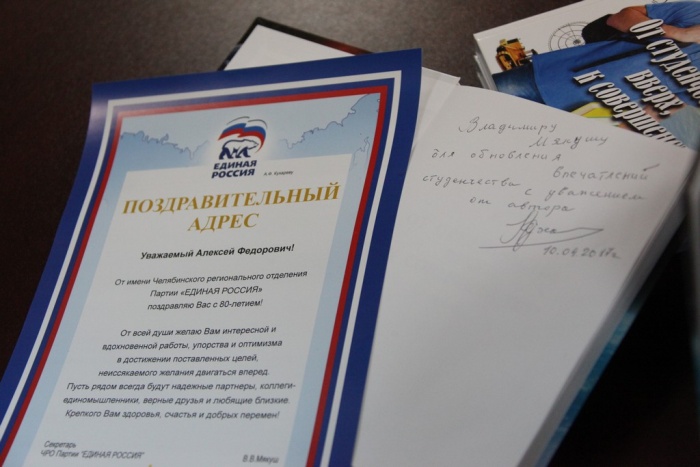 ЕДИНАЯ
РОССИЯ
ПОЗДРАВИТЕЛЬНЫЙ
АДРЕС
Уважаемый Алексей Федорович!
От имени Челябинского регионального отделения
Партии «ЕДИНАЯ РОССИЯ»
поздравляю Вас с 80-летием!
От всей души желаю Вам интересной и
вдохновенной работы, упорства и оптимизма
в достижении поставленных целей,
неиссякаемого желания двигаться вперед.
Пусть рядом всегда будут надежные партнеры, коллеги-
единомышленники, верные друзья и любящие близкие.
Крепкого Вам здоровья, счастья и добрых перемен!
Секретарь
ЧРО Партии "ЕДИНАЯ РОССИЯ"
В.В.Мякуш
Владимиру
Мякушу
для обновления
впечатлений
студенчества с уважением
от автора
10.04.2017г.
От студ
вверх
к соверше